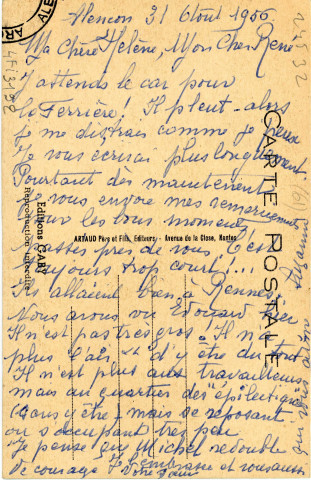 Alençon 31 Août 1956
Ma Chère Hélène, Mon Cher René
J'attends le car pour
la Ferrière! Il pleut - alors
je me distrais comme je peux
Je vous écrirai plus longuement
Pourtant dès maintenant
je vous envoie mes remerciements
pour les bons moments
passés près de vous. C'est
toujours trop court!...
Ils allaient bien à Rennes.
Nous avons vu Edouard hier
Il n'est pas très gros! Il n'en
plus l'air d'y être du tout
Il n'est plus aux travailleurs
mais au quartier des "épileptiques
(sans y être) mais se reposant
ou s'occupant très peu
Je pense que Michel redouble
de courage Je embrasse et vous aussi
CARTE POSTALE
ARTAUD Père et Fils, Editeurs - Avenue de la Close, Nantes
Editions GABY
Reproduction interdite